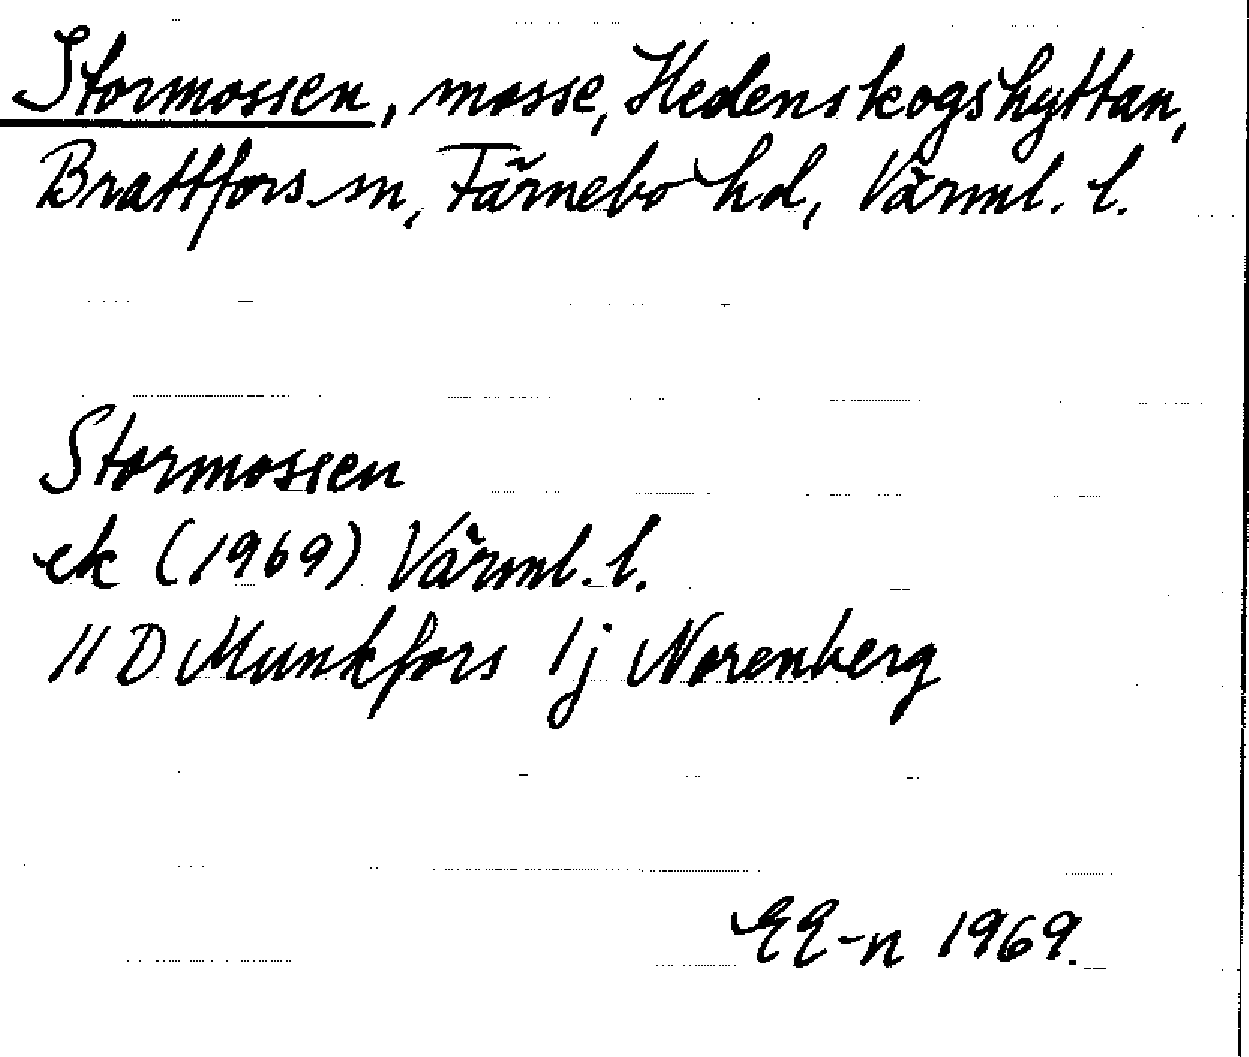 Stormossen, mosse, Hedenskogshyttan,
Brattfors sn, Färnebo hd, Värml. l.
Stormossen
ek (1969) Värml. l.
11 D Munkfors 1j Norenberg
EE-n 1969.